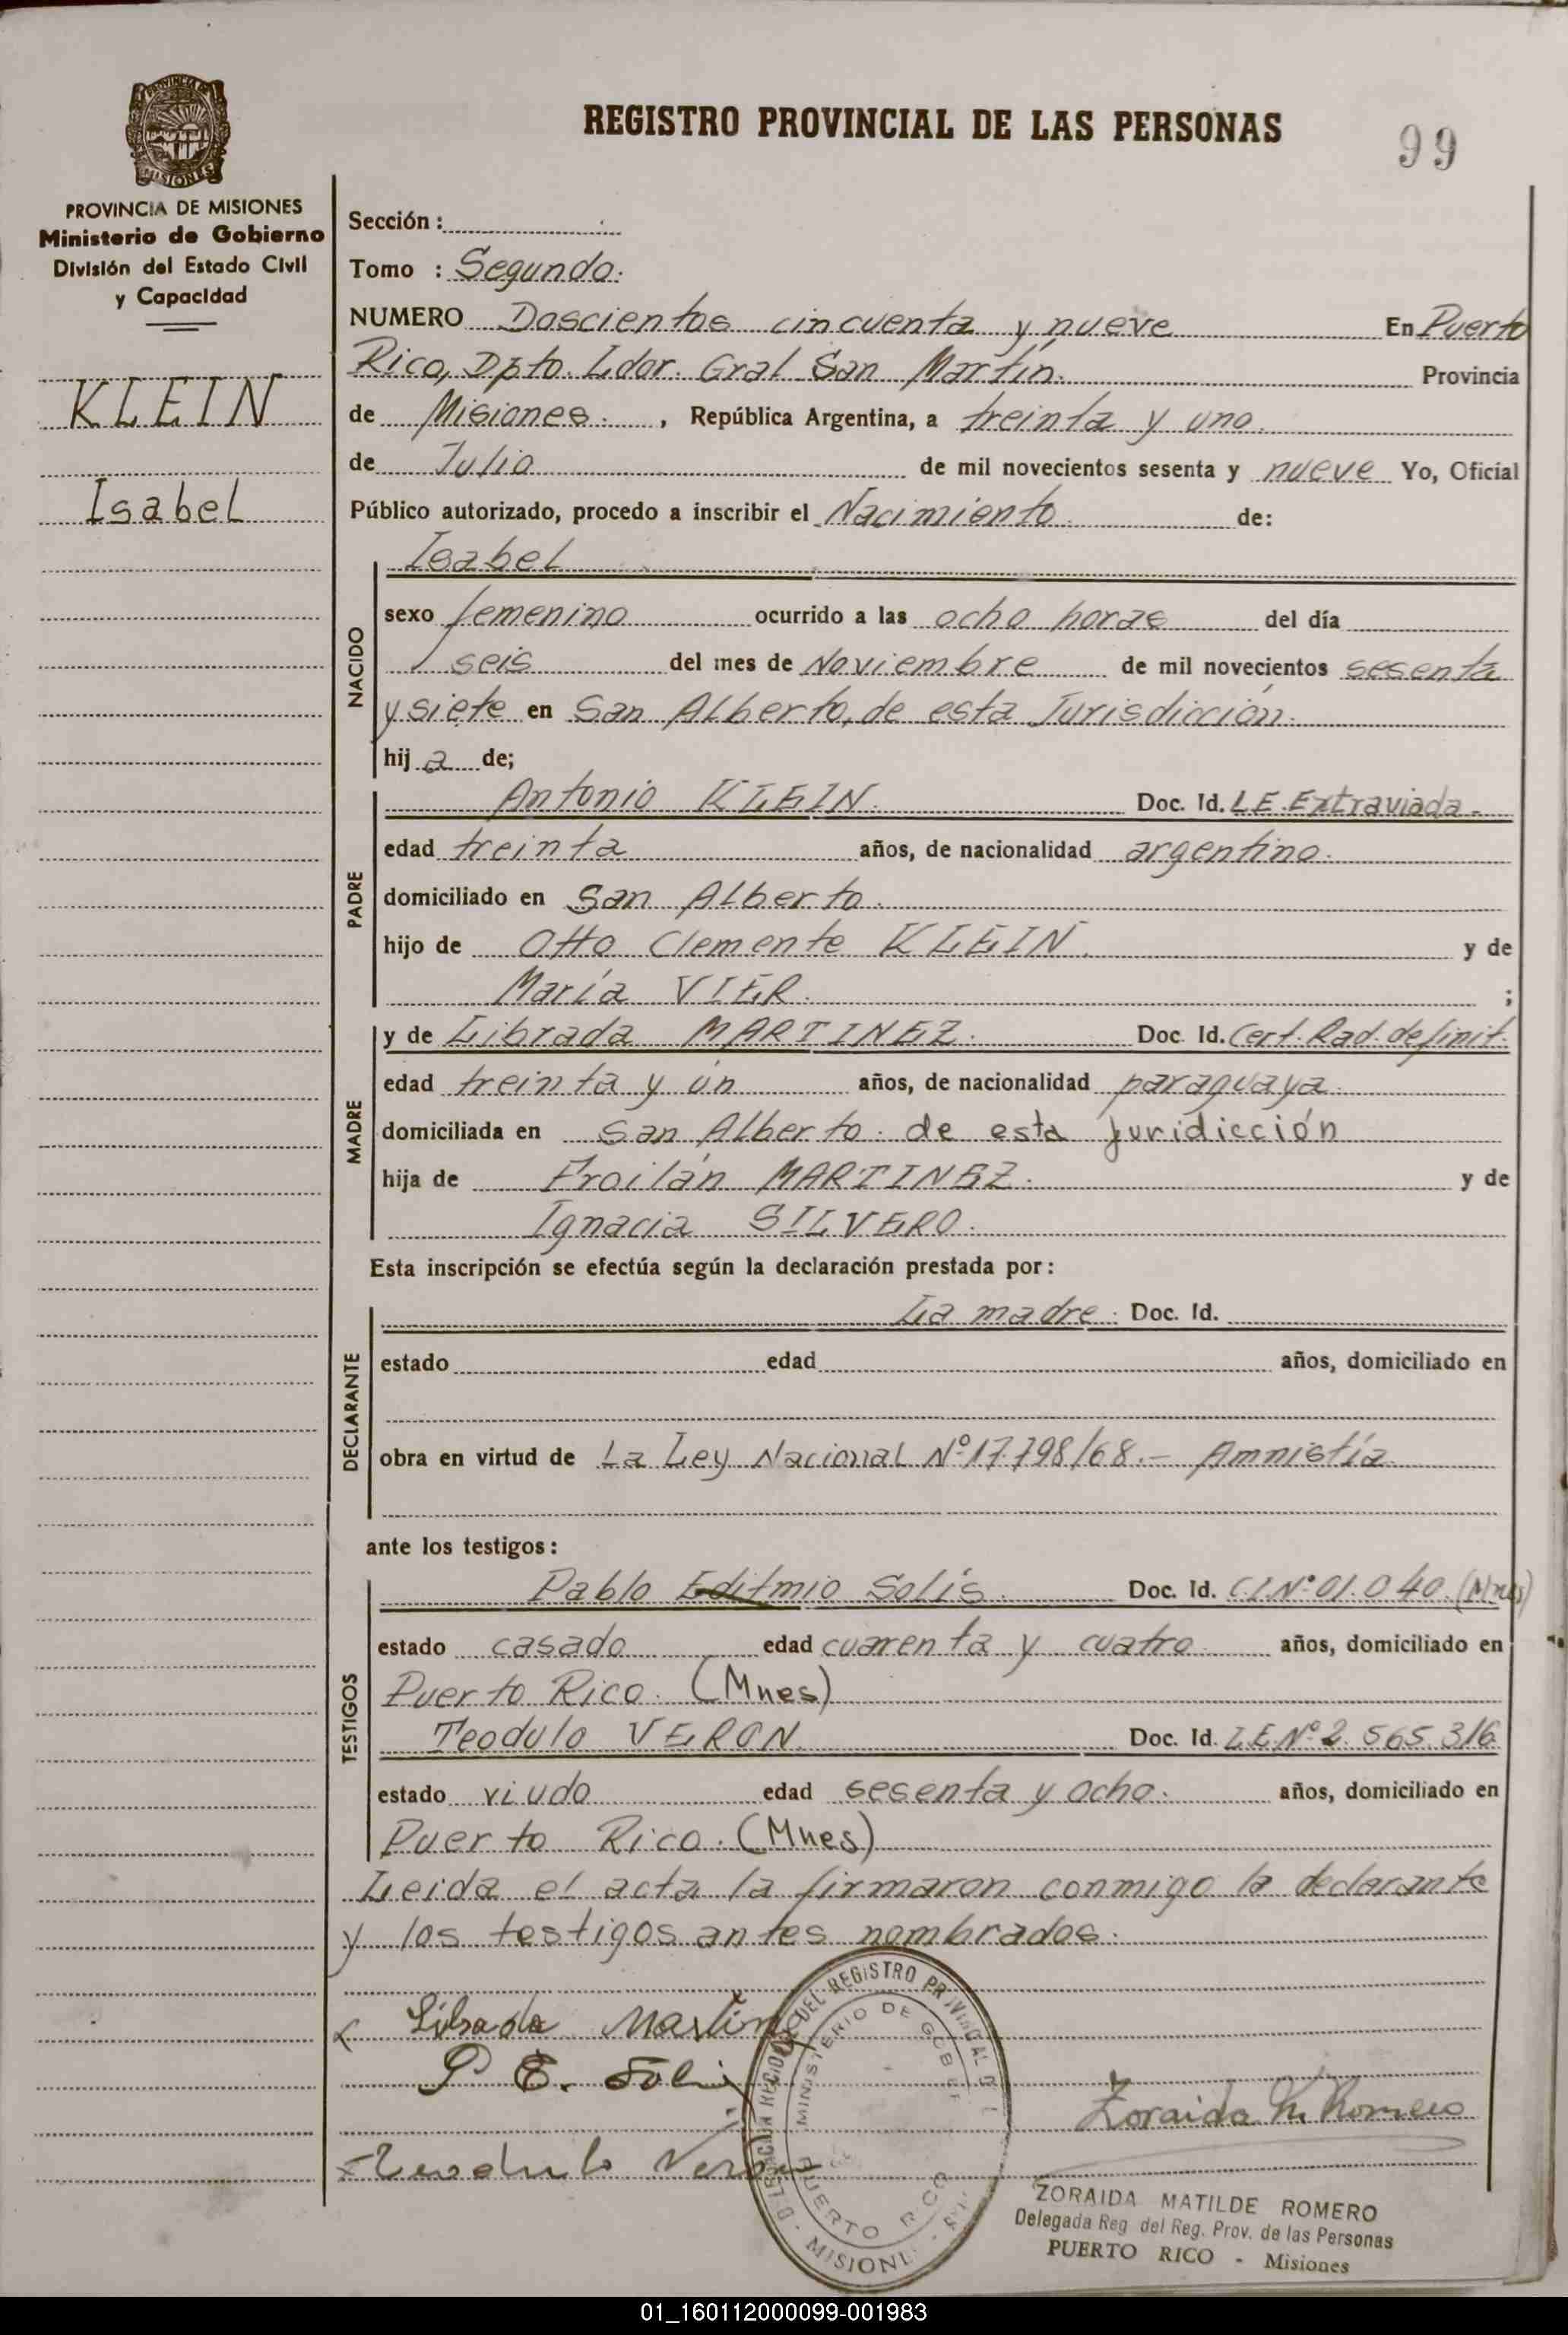 REGISTRO PROVINCIAL DE LAS PERSONAS
99
PROVINCIA DE MISIONES
Ministerio de Gobierno
División del Estado Civil
y Capacidad
KLEIN
Isabel
Sección :
Tomo : Segundo.
NUMERO Doscientos cincuenta y nueve En Puerto
Rico, Dpto. Ldor. Gral San Martín. Provincia
de Misiones. , República Argentina, a treinta y uno.
de Julio de mil novecientos sesenta y nueve Yo, Oficial
Público autorizado, procedo a inscribir el Nacimiento. de:
NACIDO
Isabel
sexo femenino ocurrido a las ocho horas del día
seis del mes de Noviembre de mil novecientos sesenta
y siete en San Alberto, de esta Jurisdicción.
hij a de;
PADRE
Antonio KLEIN. Doc. Id. LE. Extraviada.-
edad treinta años, de nacionalidad argentino.
domiciliado en San Alberto.
hijo de Otto Clemente KLEIN. y de
María VIER. ;
MADRE
y de Librada MARTINEZ. Doc. Id. Cert. Rad. definit.
edad treinta y ún años, de nacionalidad paraguaya.
domiciliada en San Alberto. de esta juridicción
hija de Froilán MARTINEZ. y de
Ignacia SILVERO.
Esta inscripción se efectúa según la declaración prestada por:
DECLARANTE
La madre. Doc. Id.
estado edad años, domiciliado en
obra en virtud de La Ley Nacional Nº 17.798/68.- Amnistía.
ante los testigos:
TESTIGOS
Pablo Solís. Doc. Id. C.I.Nº 01.040. (Mnes)
estado casado edad cuarenta y cuatro. años, domiciliado en
Puerto Rico. (Mnes)
Teodulo VERON. Doc. Id. L.E.Nº 2.565.316
estado viudo edad sesenta y ocho. años, domiciliado en
Puerto Rico. (Mnes)
Leida el acta la firmaron conmigo la declarante
y los testigos antes nombrados.
Librada Martin
P E. Solis
Teodulo Veron
DEL REGISTRO PROVINCIAL
MINISTERIO DE GOBIER
PUERTO RICO
MISIONES
Zoraida M. Romero
ZORAIDA MATILDE ROMERO
Delegada Reg del Reg. Prov. de las Personas
PUERTO RICO - Misiones
01_160112000099-001983